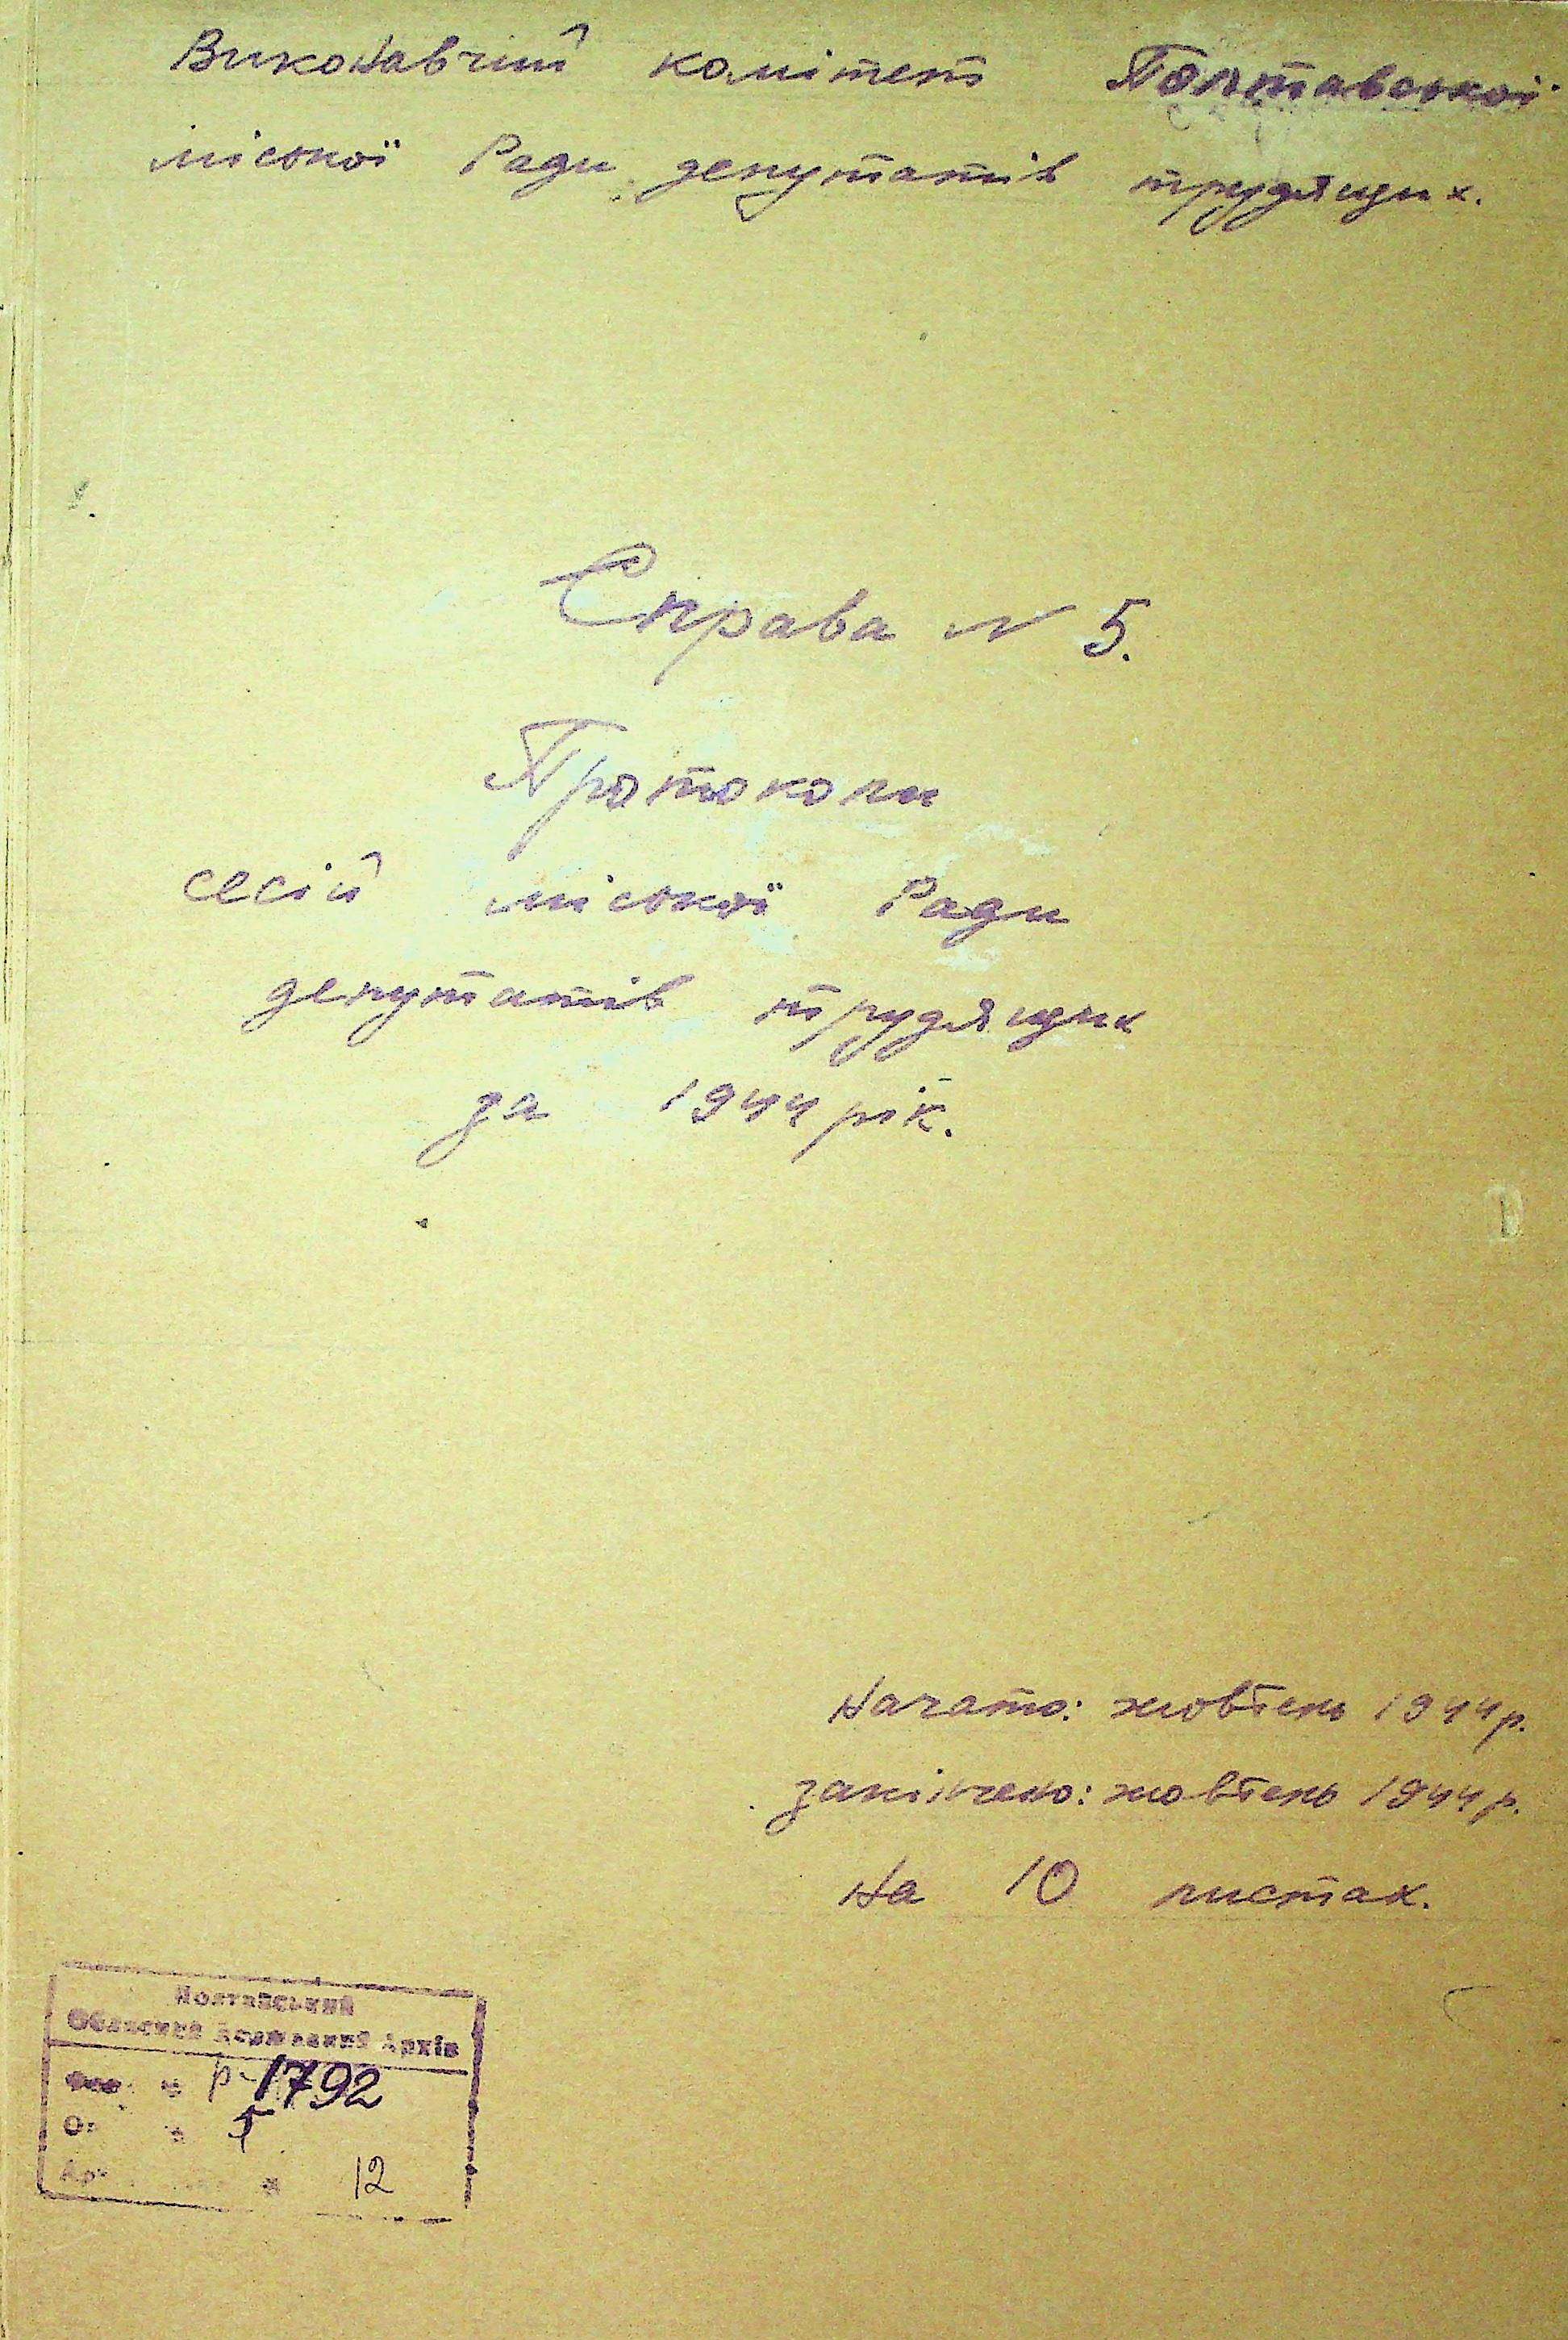 Виконавчий комітет Полтавської
міської Ради депутатів трудящих.
Справа № 5.
Протоколи
сесій міської Ради
депутатів трудящих
за 1944 рік.
Начато: жовтень 1944 р.
закінчено: жовтень 1944 р.
На 10 листах.
Полтавський
Обласний Державний Архів
Фонд № р-1792
Оп №
Арх. № 12